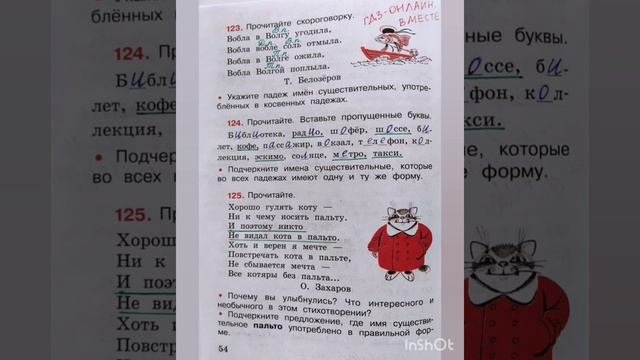 123. Прочитайте скороговорку.
ГДЗ-ОНЛАЙН,
ВМЕСТЕ
В.п.
Вобла в Волгу угодила,
Д.п. В.п.
Вобла вобле соль отмыла.
П.п.
Вобла в Волге ожила,
Т.п.
Вобла Волгой поплыла.
Т. Белозёров
• Укажите падеж имён существительных, употреб-
лённых в косвенных падежах.
124. Прочитайте. Вставьте пропущенные буквы.
Библиотека, радио, шофёр, шоссе, би-
лет, кофе, пассажир, вокзал, телефон, кол-
лекция, эскимо, солнце, метро, такси.
• Подчеркните имена существительные, которые
во всех падежах имеют одну и ту же форму.
125. Прочитайте.
Хорошо гулять коту —
Ни к чему носить пальту.
И поэтому никто
Не видал кота в пальто.
Хоть и верен я мечте —
Повстречать кота в пальте,
Не сбывается мечта —
Все котяры без пальта...
О. Захаров
• Почему вы улыбнулись? Что интересного и
необычного в этом стихотворении?
• Подчеркните предложение, где имя существи-
тельное пальто употреблено в правильной фор-
ме.
54
блённ
124.
Библ
лет, кофе
лекция,
• Подчерк
во всех п
125.
Хоро
Ни к
И поэ
Не ви
Хоть и
Повст
ные буквы.
оссе, би
фон, кол-
кси.
которые
форму.
InShOt